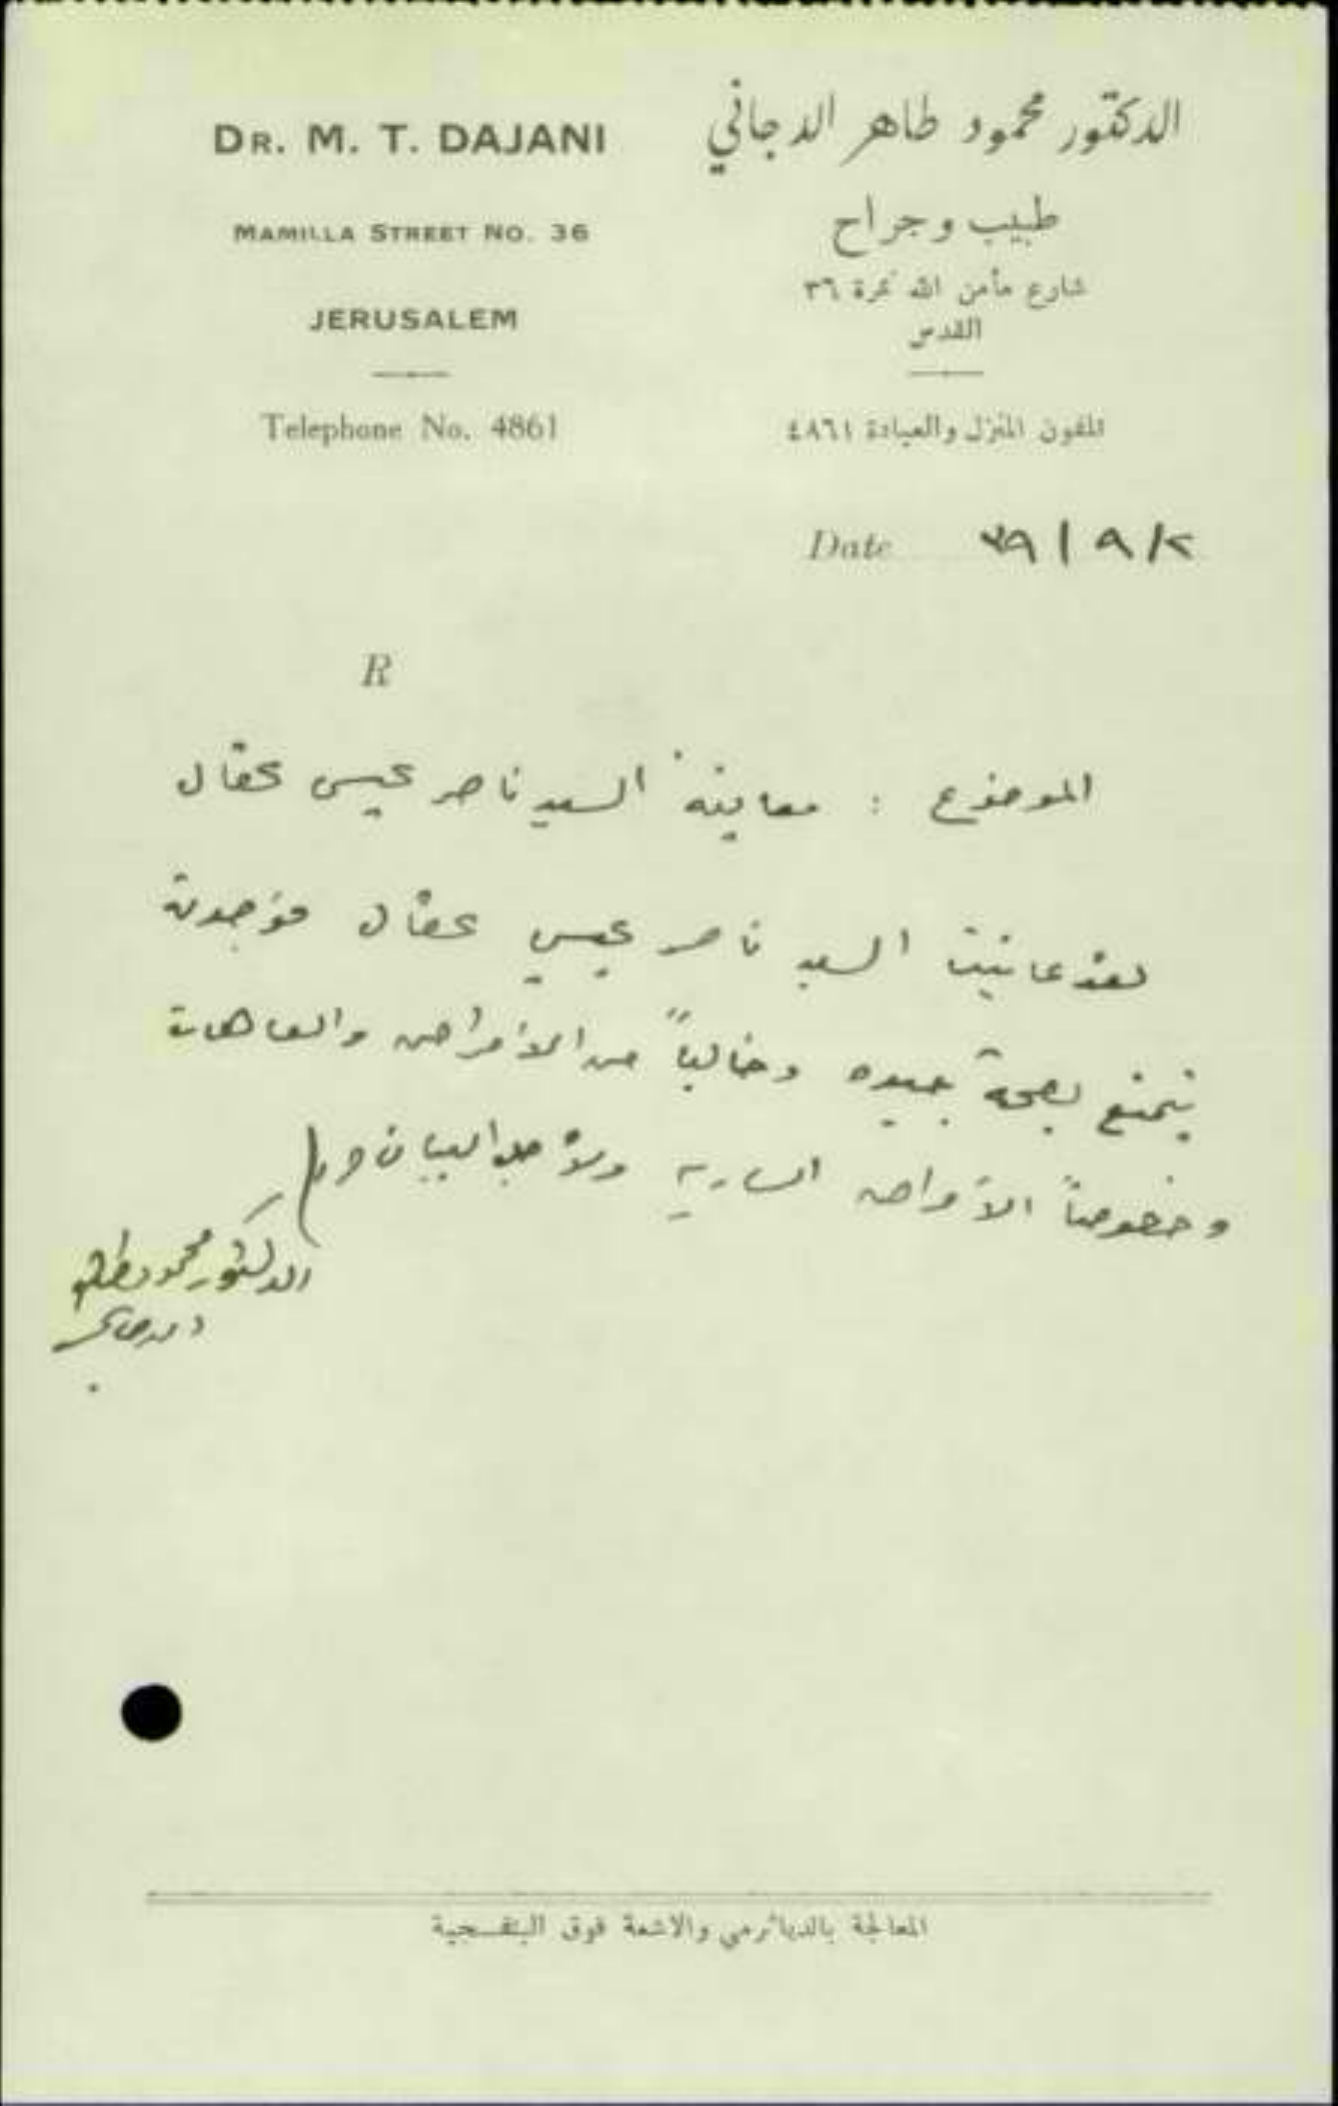 DR. M. T. DAJANI
MAMILLA STREET NO. 36
JERUSALEM
Telephone No. 4861
الدكتور محمود طاهر الدجاني
طبيب وجراح
شارع مأمن الله نمرة ٣٦
القدس
تلفون المنزل والعيادة ٤٨٦١
Date ٣٩ / ٩ / ٢
R
الموضوع : معاينة السيد ناصر عيسى عقال
لقد عاينت السيد ناصر عيسى عقال فوجدته
يتمتع بصحة جيده وخالياً من الأمراض والعاهات
وخصوصاً الأمراض الساريه ولأجل البيان
الدكتور محمود طاهر
الدجاني
المعالجة بالدياثرمي والاشعة فوق البنفسجية